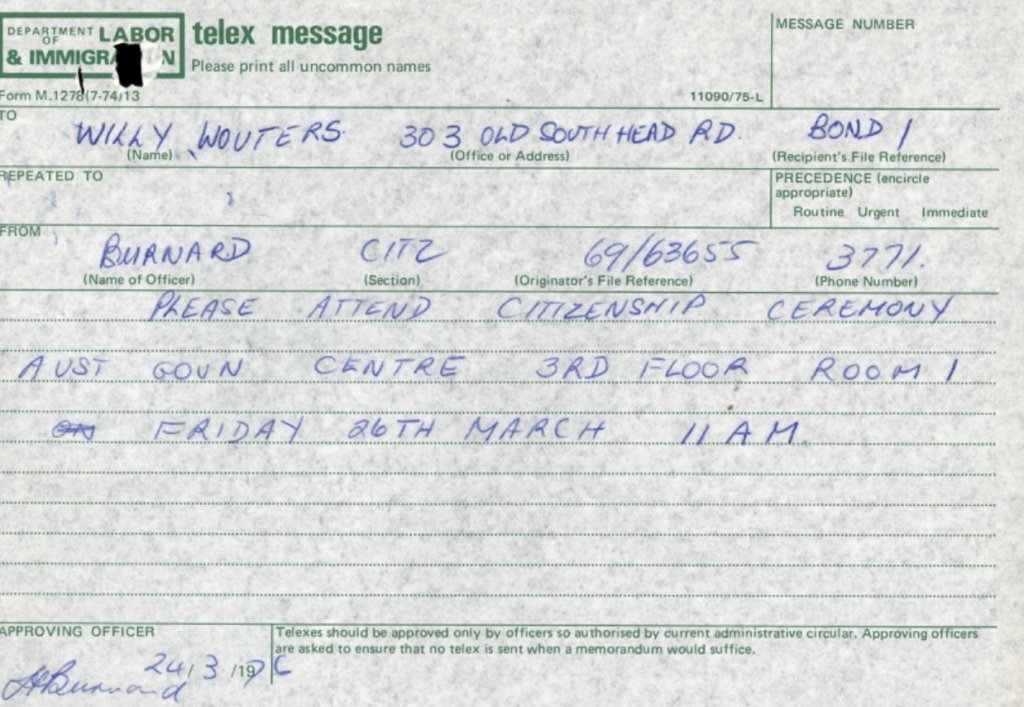 DEPARTMENT OF LABOR telex message MESSAGE NUMBER
& IMMIGR N Please print all uncommon names
Form M.1278(7-74)13 11090/75-L
TO
WILLY WOUTERS. 303 OLD SOUTH HEAD RD. BOND 1
(Name) (Office or Address) (Recipient's File Reference)
REPEATED TO PRECEDENCE (encircle appropriate)
Routine Urgent Immediate
FROM
BURNARD CITZ 69/63655 3771.
(Name of Officer) (Section) (Originator's File Reference) (Phone Number)
PLEASE ATTEND CITIZENSHIP CEREMONY
AUST GOVN CENTRE 3RD FLOOR ROOM 1
FRIDAY 26TH MARCH 11 AM.
APPROVING OFFICER Telexes should be approved only by officers so authorised by current administrative circular. Approving officers
are asked to ensure that no telex is sent when a memorandum would suffice.
24/3/197
Burnard